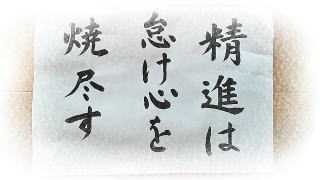 精進は
怠け心を
焼尽す